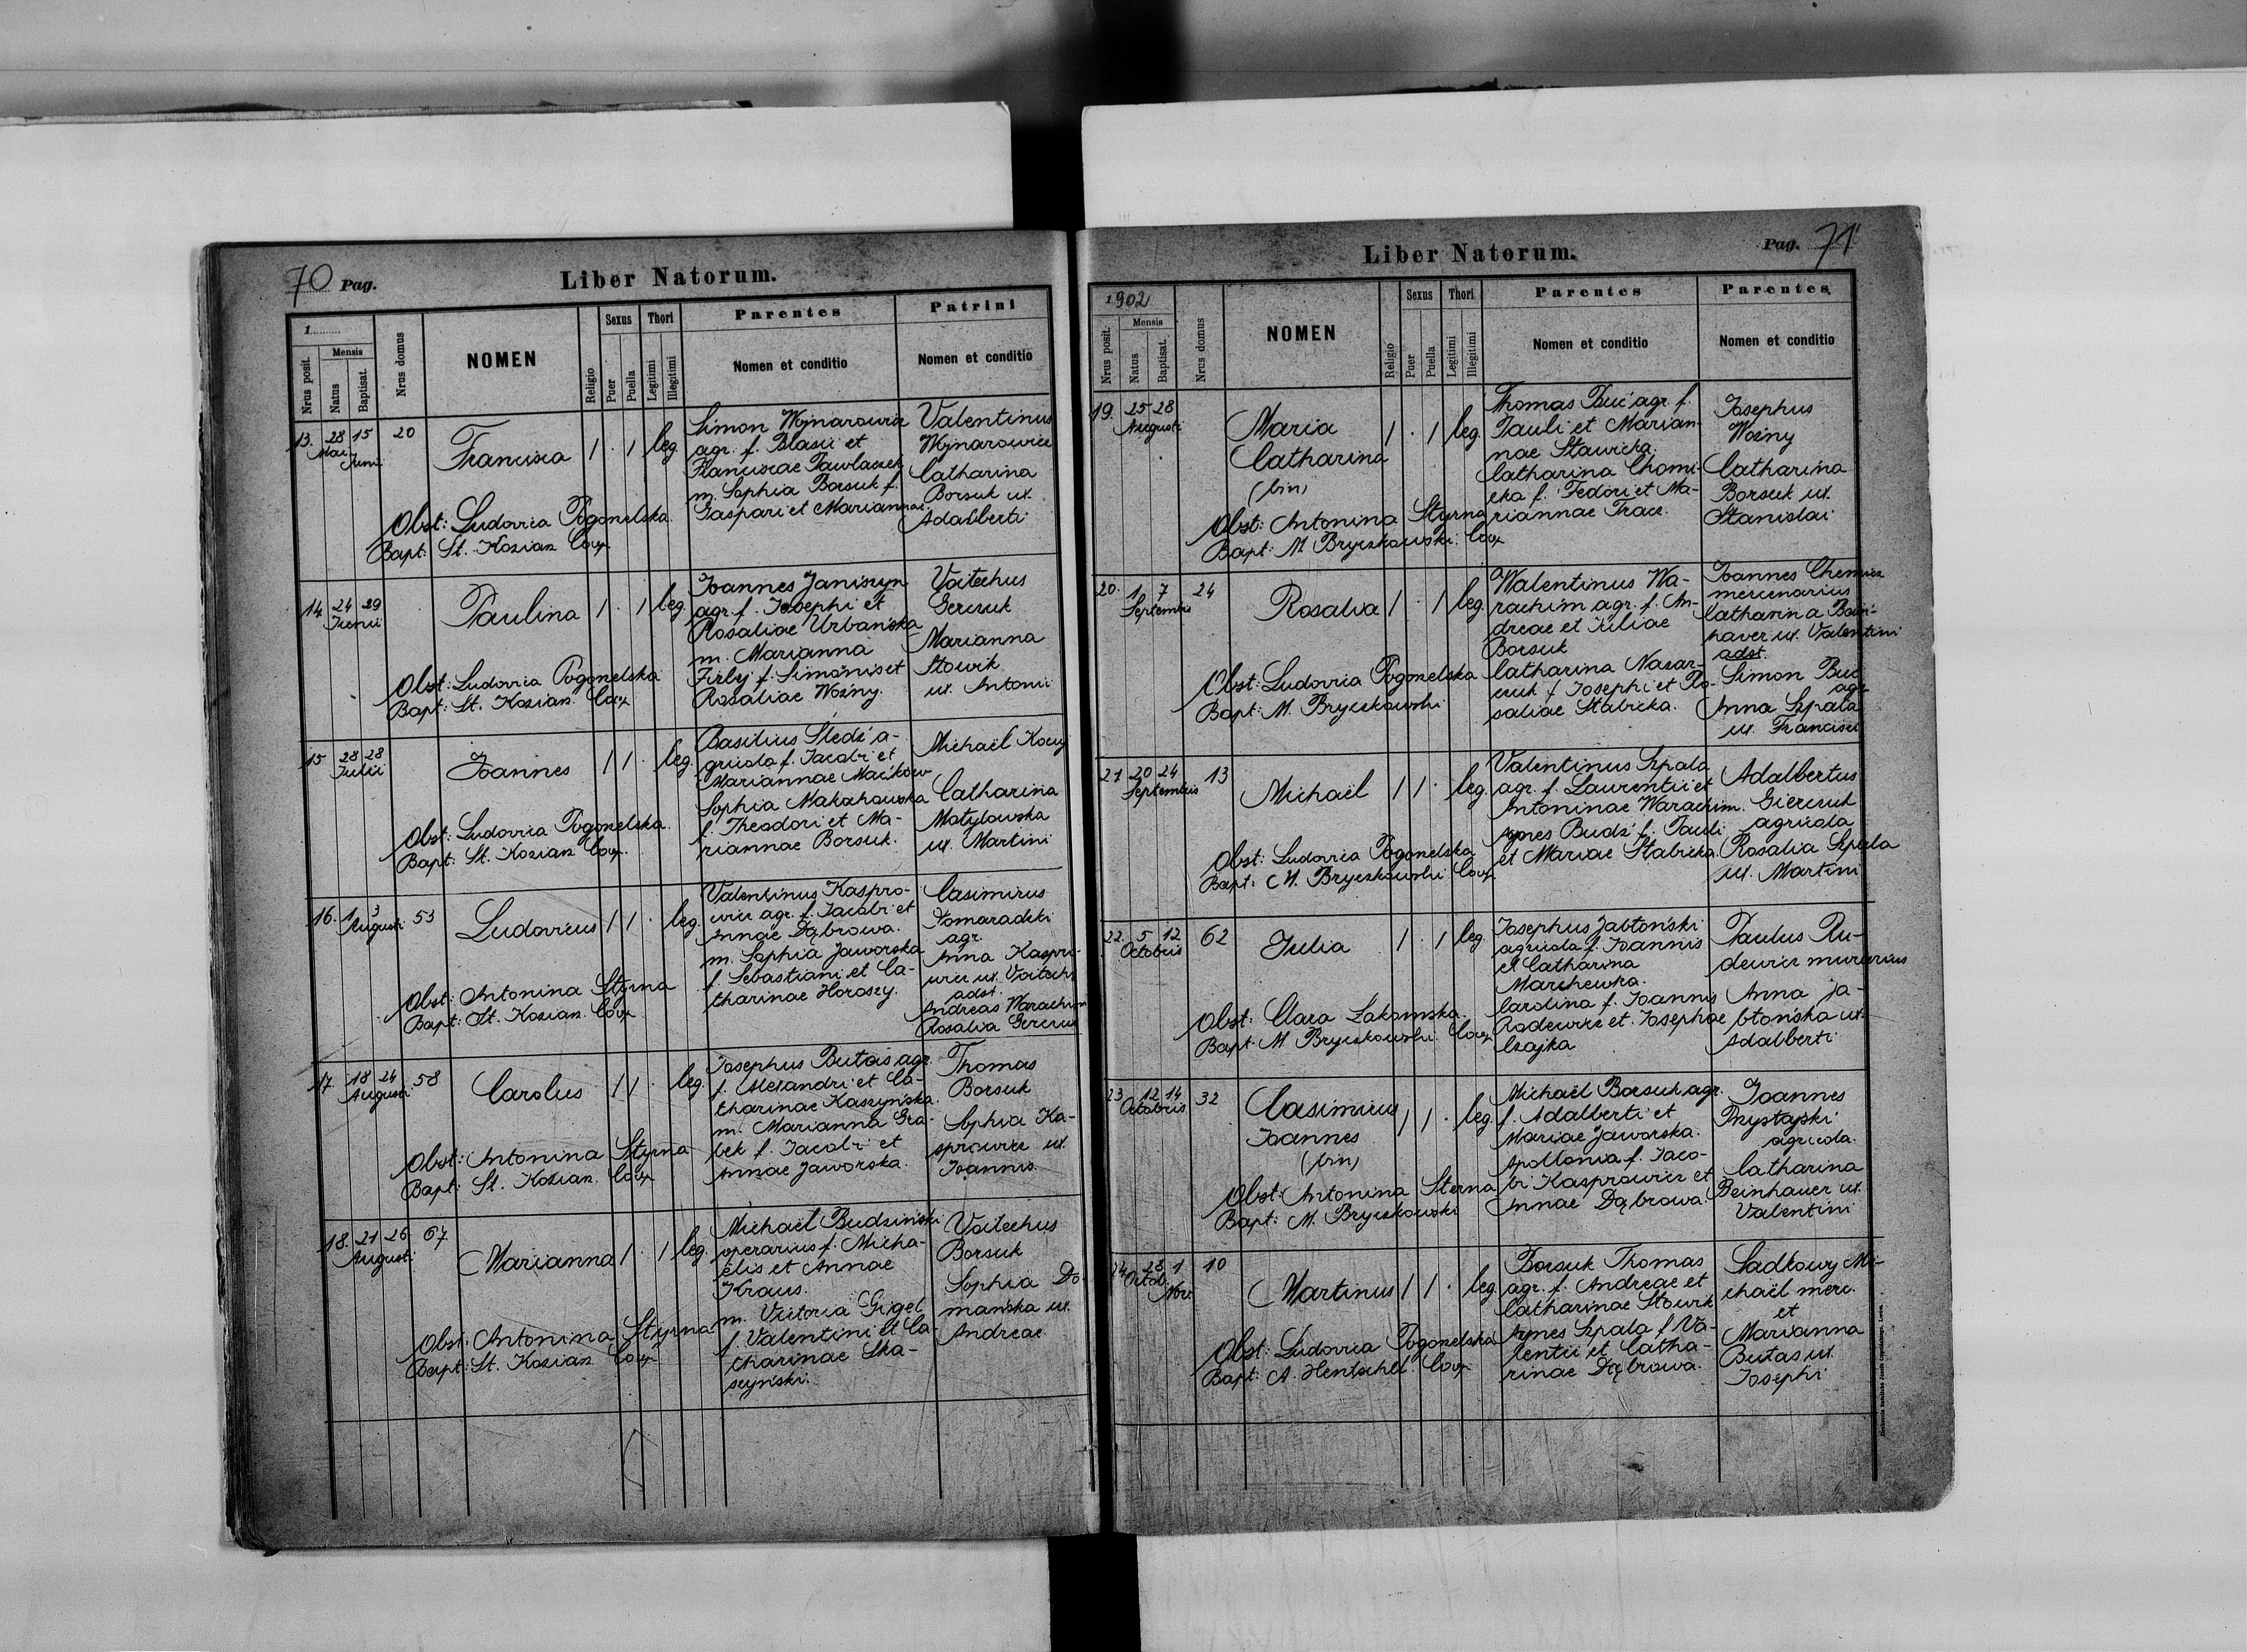 70 Pag.
Liber Natorum.
1
Nrus posit.
Mensis
Natus
Baptisat.
Nrus domus
NOMEN
Religio
Sexus
Puer
Puella
Thori
Legitimi
Illegitimi
Parentes
Nomen et conditio
Patrini
Nomen et conditio
13. 28 15 20
Mai
Junii
Francisca 1 . 1 leg.
Simon Wojnarowicz
agr. f. Blasii et
Franciscae Pawlaczek
m. Sophia Borsuk f.
Gaspari et Mariannae
Valentinus
Wojnarowicz
Catharina
Borsuk ux.
Adalberti
Obst: Ludovica Pogonelska
Bapt: St. Kozian Coop
14. 24 29
Iunii
Paulina 1 . 1 leg.
Ioannes Janiszyn
agr. f. Iosephi et
Rosaliae Urbańska
m. Marianna
Firly f. Simonis et
Rosaliae Woźny.
Voitechus
Gerczuk
Marianna
Słowik
ux. Antonii
Obst: Ludovica Pogonelska
Bapt: St. Kozian Coop
15 28 28
Iulii
Ioannes 1 1 . leg.
Basilius Śledź a-
gricola f. Iacobi et
Mariannae Maćków
Sophia Makahowska
f. Theodori et Ma-
riannae Borsuk.
Michaël
Catharina
Motylowska
ux. Martini
Obst: Ludovica Pogonelska.
Bapt: St. Kozian Coop.
16. 1 3 53
Augusti
Ludovicus 1 1 . leg.
Valentinus Kaspro-
wicz agr. f. Iacobi et
Annae Dąbrowa.
m. Sophia Jaworska
f. Sebastiani et Ca-
tharinae Horosey.
Casimirus
Domaradzki
agr.
Anna Kaspro-
wicz ux. Voitechi
adst.
Andreas Warachim
Rosalia Gerczuk
Obst: Antonina Styrna
Bapt: St. Kozian Coop
17. 18 24 58
Augusti
Carolus 1 1 . leg.
Iosephus Butas agr.
f. Alexandri et Ca-
tharinae Kaszyńska.
m. Marianna Gra-
bek f. Iacobi et
Annae Jaworska.
Thomas
Borsuk
Sophia Ka-
sprowicz ux.
Ioannis.
Obst: Antonina Styrna
Bapt: St. Kozian. Coop
18. 21 26 67.
Augusti
Marianna 1 . 1 leg.
Michaël Budziński
operarius f. Micha-
elis et Annae
Kraus.
m. Victoria Gigel
f. Valentini et Ca-
tharinae Ska-
szyński.
Voitechus
Borsuk
Sophia Do-
mańska ux.
Andreae
Obst: Antonina Styrna
Bapt: St. Kozian Coop
Liber Natorum.
Pag. 71
1902
Nrus posit.
Mensis
Natus
Baptisat.
Nrus domus
NOMEN
Religio
Sexus
Puer
Puella
Thori
Legitimi
Illegitimi
Parentes
Nomen et conditio
Parentes
Nomen et conditio
19. 25 28
Augusti
Maria
Catharina
(bin)
1 . 1 leg.
Thomas Buć agr. f.
Pauli et Marian-
nae Stawicka.
Catharina Chomi-
cka f. Fedori et Ma-
riannae Tracz.
Iosephus
Woźny
Catharina
Borsuk ux.
Stanislai
Obst: Antonina Styrna
Bapt: M. Bryczkowski. Coop
20. 1 7 24
Septembris
Rosalia 1 . 1 leg.
Walentinus Wa-
rachim agr. f. An-
dreae et Iuliae
Borsuk
Catharina Nazar-
czuk f. Iosephi et Ro-
saliae Stabicka.
Ioannes
mercenarius
Catharina
ux. Valentini
adst.
Simon Buć
agr.
Anna Szpala
ux. Francisci
Obst: Ludovica Pogonelska
Bapt: M. Bryczkowski
21 20 24 13
Septembris
Michaël 1 1 . leg.
Valentinus Szpala
agr. f. Laurentii et
Antoninae Warachim.
Agnes Budź f. Pauli
et Mariae Stabicka.
Adalbertus
Gierczuk
agricola
Rosalia Szpala
ux. Martini
Obst: Ludovica Pogonelska
Bapt: M. Bryczkowski Coop
22. 5 12 62
Octobris
Julia 1 . 1 leg.
Iosephus Jabłoński
agricola f. Ioannis
et Catharina
Marchewka.
Carolina f. Ioannis
Radewicz et Iosephae
Czajka
Paulus Ru-
dewicz murarius
Anna Ja-
błońska ux.
Adalberti
Obst: Clara Łakomska.
Bapt: M. Bryczkowski Coop
23 12 14 32
Octobris
Casimirus
Ioannes
(bin)
1 1 . leg.
Michaël Borsuk agr.
f. Adalberti et
Mariae Jaworska.
Apollonia f. Iaco-
bi Kasprowicz et
Annae Dąbrowa.
Ioannes
Przystajski
agricola.
Catharina
Beinhauer ux.
Valentini
Obst: Antonina Sterna
Bapt: M. Bryczkowski
24 28 1 10
Octob.
Nov.
Martinus 1 1 . leg.
Borsuk Thomas
agr. f. Andreae et
Catharinae Słowik
Agnes Szpala f. Va-
lentii et Catha-
rinae Dąbrowa.
Sadłowy Mi-
chaël merc.
et
Marianna
Butas ux.
Iosephi
Obst: Ludovica Pogonelska
Bapt: A. Hentschel. Coop